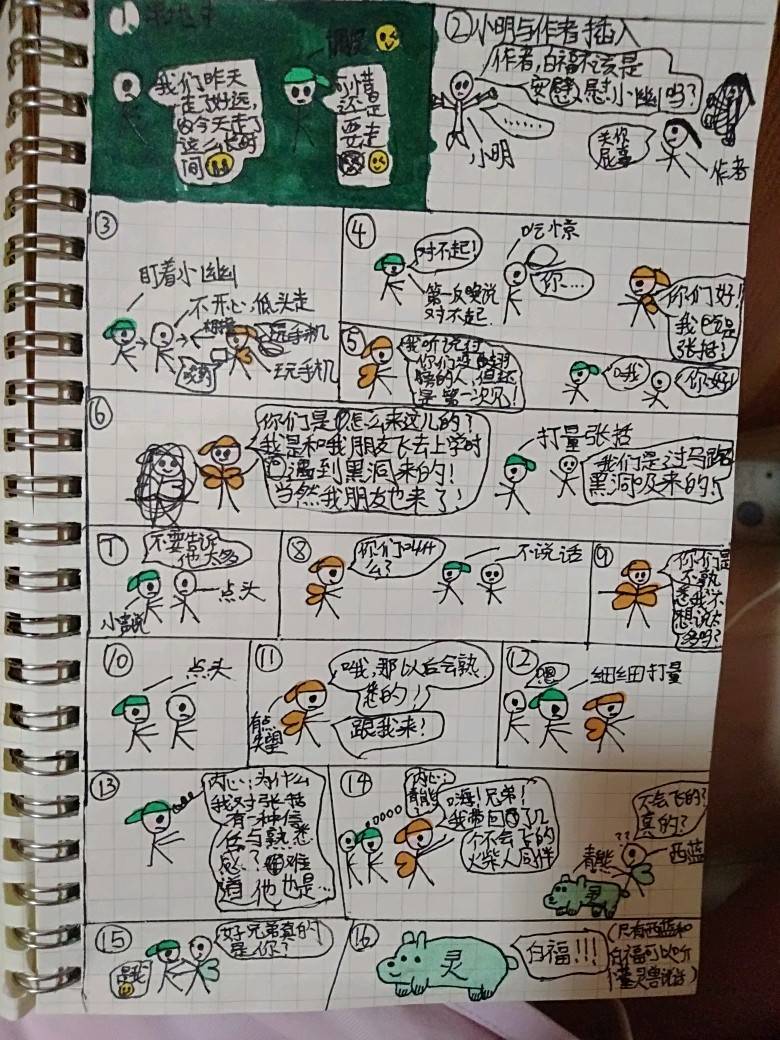 ①
我们昨天
走了好远,
今天走了
这么长时
间
可惜
还是
要走
②小明与作者插入
作者,白福不该是
安慰小幽吗?
........
小明
关你
屁事
作者
③
盯着小幽
不开心,低头走
玩手机
④
对不起!
第一反应说
对不起.
吃惊
你....
你们好!
我是
张括!
⑤
我听说过
你们没翅
膀的人,但还
是第一次见!
哦
你好!
⑥
你们是怎么来这儿的?
我是和我朋友飞去上学时
遇到黑洞来的!
当然我朋友也来了!
打量张括
我们是过马路
黑洞吸来的!
⑦
不要告诉
他太多
小声说
点头
⑧
你们叫什
么?
不说话
⑨
你们是
不熟
悉我不
想说太
多吗?
⑩
点头
⑪
哦,那以后会熟
悉的!
跟我来!
有点
失望
⑫
嗯
细细打量
⑬
内心:为什么
我对张括
有一种信
任与熟悉
感?难
道他也是...
⑭
内心:
青熊!
嗨!兄弟!
我带回了几
个不会飞的
火柴人同伴
不会飞的?
真的?
??
青熊
西蓝
灵
⑮
好兄弟真的
是你?
是我
⑯
灵
白福!!!
(只有西蓝和
白福可以听
懂灵兽说话)